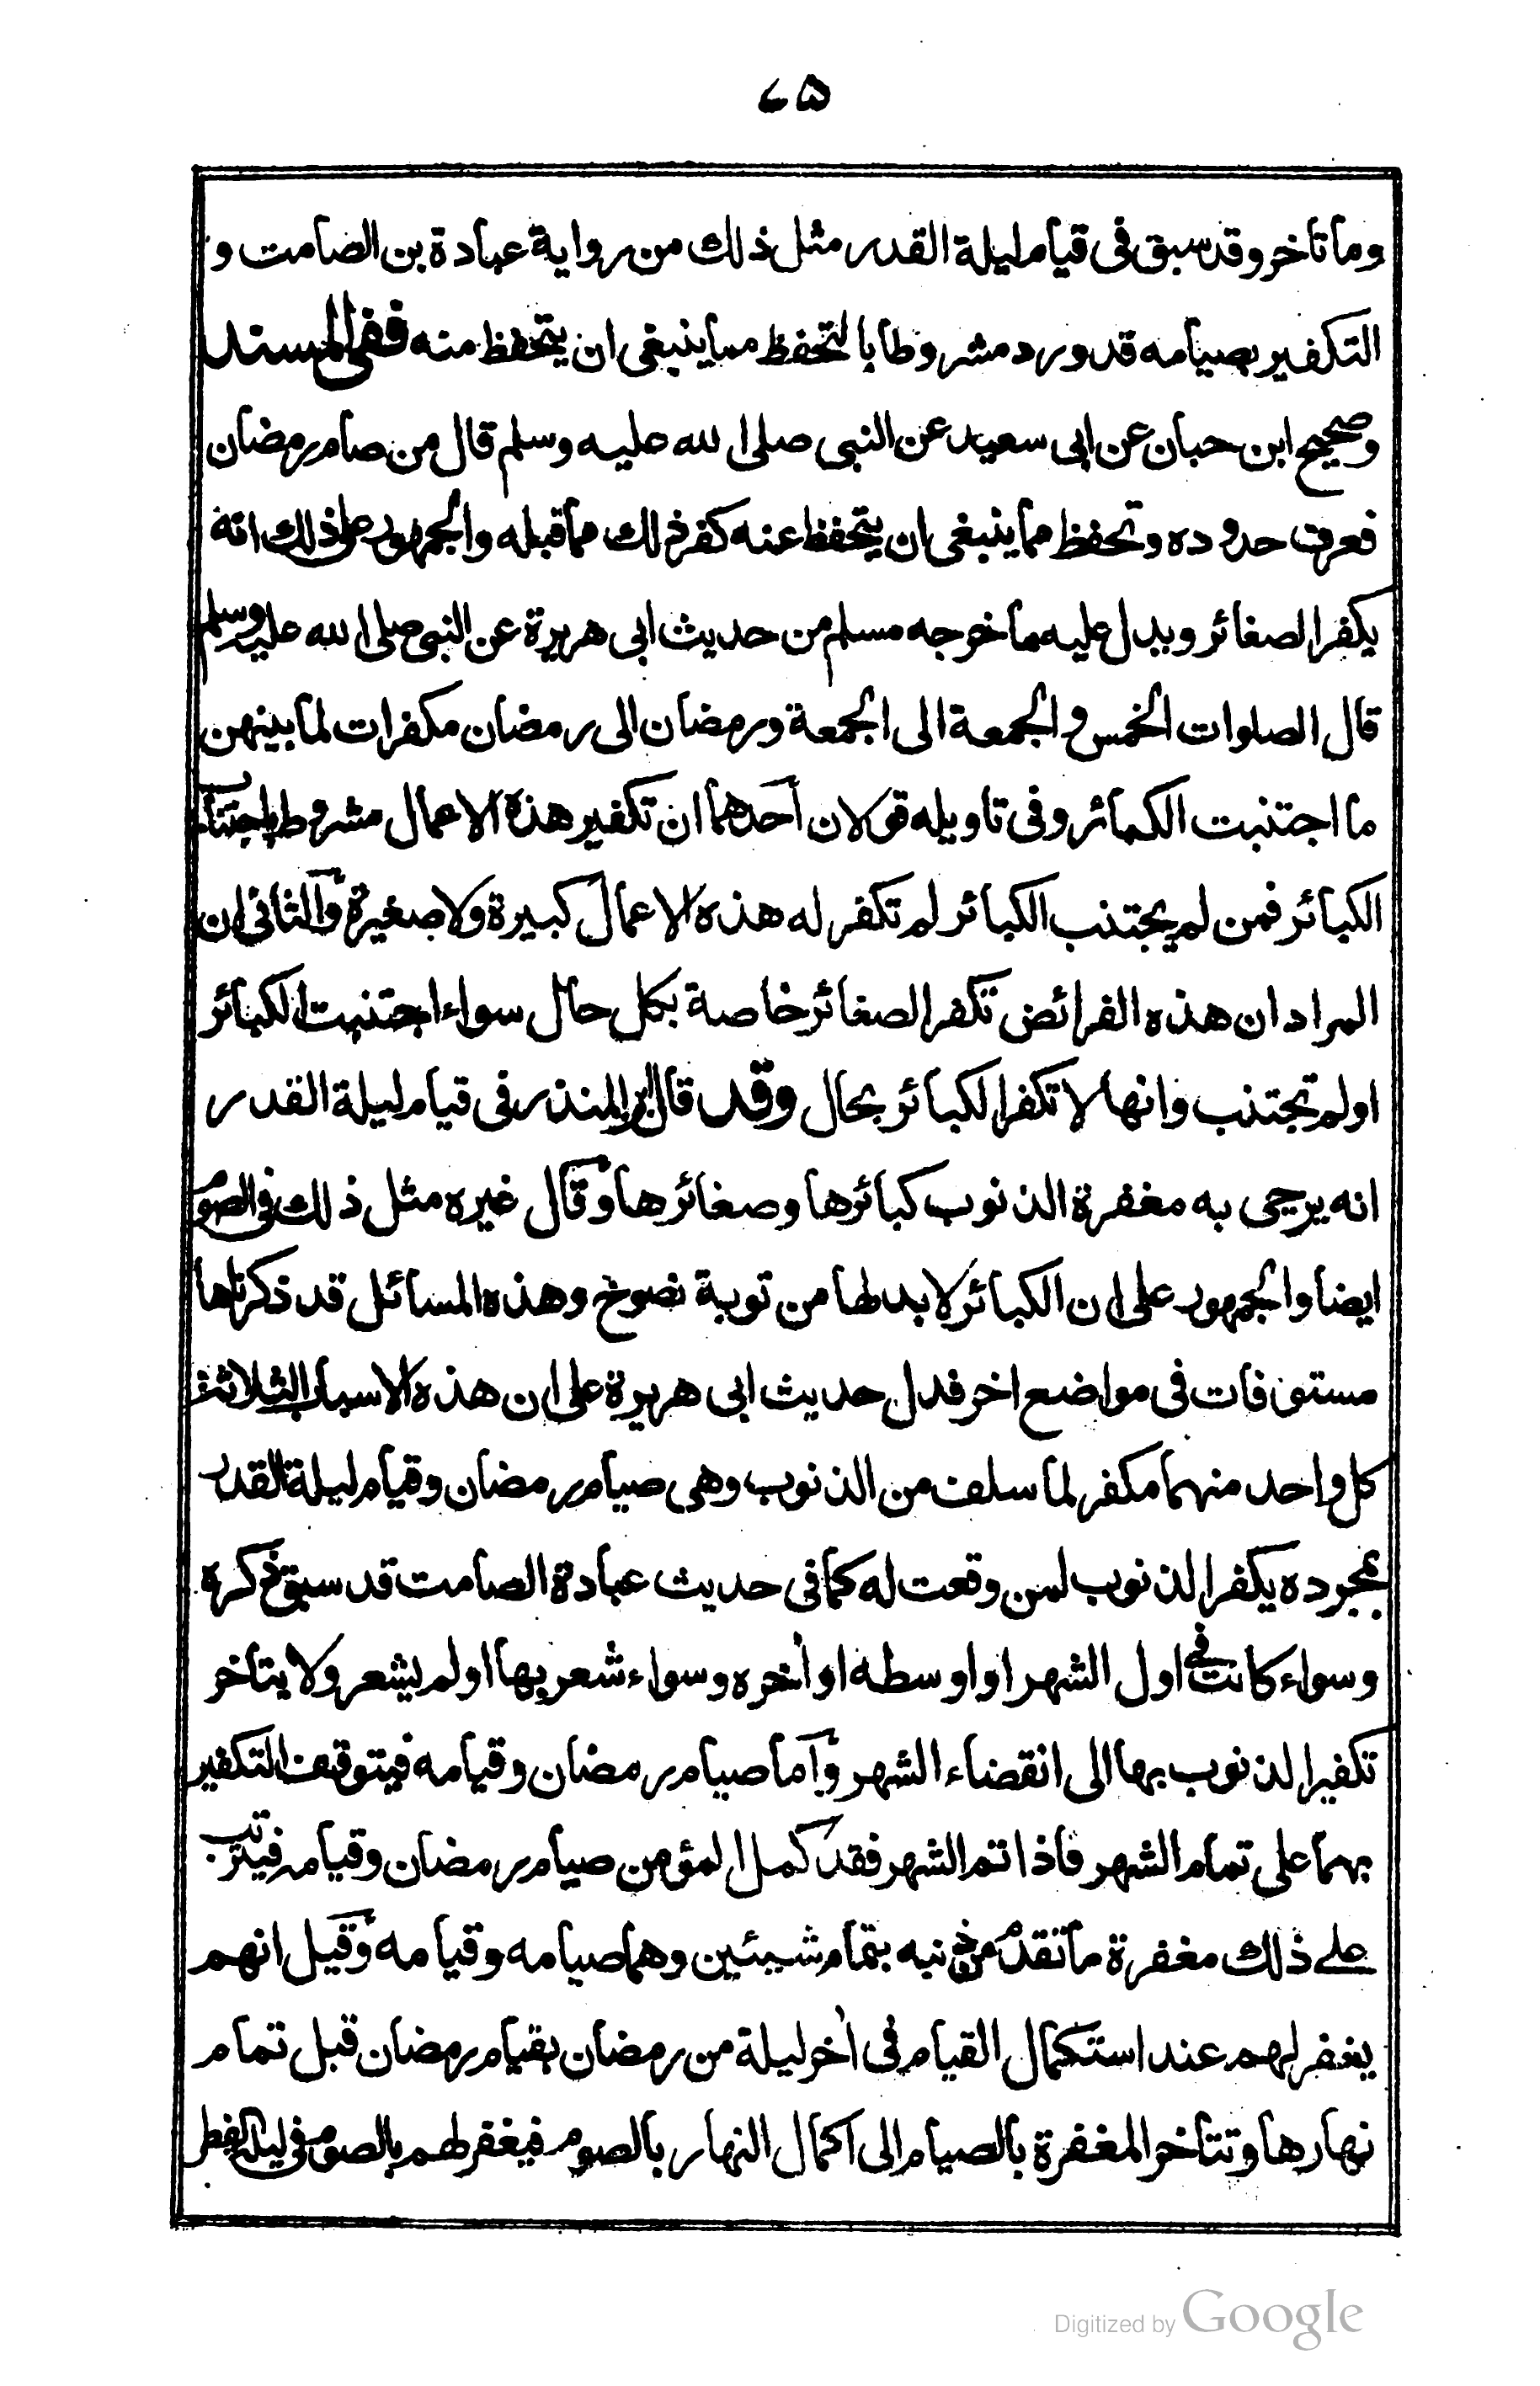 ٧٥
وما تاخر وقد سبق فى قيام ليلة القدر مثل ذلك من رواية عبادة بن الصامت و
التكفير بصيامه قد ورد مشروطا بالتحفظ مما ينبغى ان يتحفظ منه ففى المسند
وصحيح ابن حبان عن ابى سعيد عن النبى صلى الله عليه وسلم قال من صام رمضان
فعرف حدوده وتحفظ مما ينبغى ان يتحفظ عنه كفر ذلك مما قبله والجمهور على ذلك انه
يكفر الصغائر ويدل عليه ما خرجه مسلم من حديث ابى هريرة عن النبى صلى الله عليه وسلم
قال الصلوات الخمس والجمعة الى الجمعة ورمضان الى رمضان مكفرات لما بينهن
ما اجتنبت الكبائر وفى تاويله قولان احدهما ان تكفير هذه الاعمال مشروط باجتناب
الكبائر فمن لم يجتنب الكبائر لم تكفر له هذه الاعمال كبيرة ولا صغيرة والثانى ان
المراد ان هذه الفرائض تكفر الصغائر خاصة بكل حال سواء اجتنبت الكبائر
اولم تجتنب وانها لا تكفر الكبائر بحال وقد قال ابن المنذر فى قيام ليلة القدر
انه يرجى به مغفرة الذنوب كبائرها وصغائرها وقال غيره مثل ذلك فى الصوم
ايضا والجمهور على ان الكبائر لا بد لها من توبة نصوح وهذه المسائل قد ذكرناها
مستوفات فى مواضع اخر فدل حديث ابى هريرة على ان هذه الاسباب الثلاثة
كل واحد منهما مكفر لما سلف من الذنوب وهى صيام رمضان وقيام ليلة القدر
بمجرده يكفر الذنوب لمن وقعت له كما فى حديث عبادة الصامت قد سبق ذكره
وسواء كانت فى اول الشهر او اوسطه او اٰخره وسواء شعر بها اولم يشعر ولا يتاخر
تكفير الذنوب بها الى انقضاء الشهر واما صيام رمضان وقيامه فيتوقف التكفير
بهما على تمام الشهر فاذا تم الشهر فقد كمل المؤمن صيام رمضان وقيامه فيترتب
على ذلك مغفرة ما تقدم من ذنبه بتمام شيئين وهما صيامه وقيامه وقيل انهم
يغفر لهم عند استكمال القيام فى اٰخر ليلة من رمضان بقيام رمضان قبل تمام
نهارها وتتاخر المغفرة بالصيام الى اكمال النهار بالصوم فيغفر لهم بالصوم فى ليلة الفطر
Digitized by Google